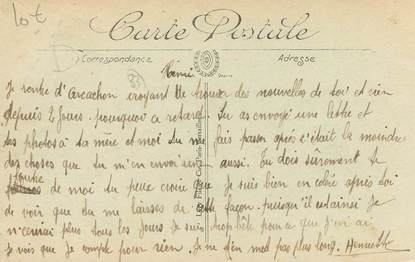 Lot
Carte Postale
Correspondance Adresse
Rémi
Je rentre d'Arcachon croyant trouver des nouvelles de toi et rien
depuis 2 jours. pourquoi ce retard. Tu as envoyé une lettre et
des photos à ta mère et moi tu me fais passer après c'était la moindre
des choses que tu m'en envoies aussi. Tu dois sûrement te
foutre de moi tu peux croire que je suis bien en colère après toi
de voir que tu me laisses de cette façon. puisqu'il est ainsi je
n'écrirai plus tous les jours je suis trop bête pour ce que j'en ai
je vois que je compte pour rien. Je ne t'en met pas plus long. Henriette